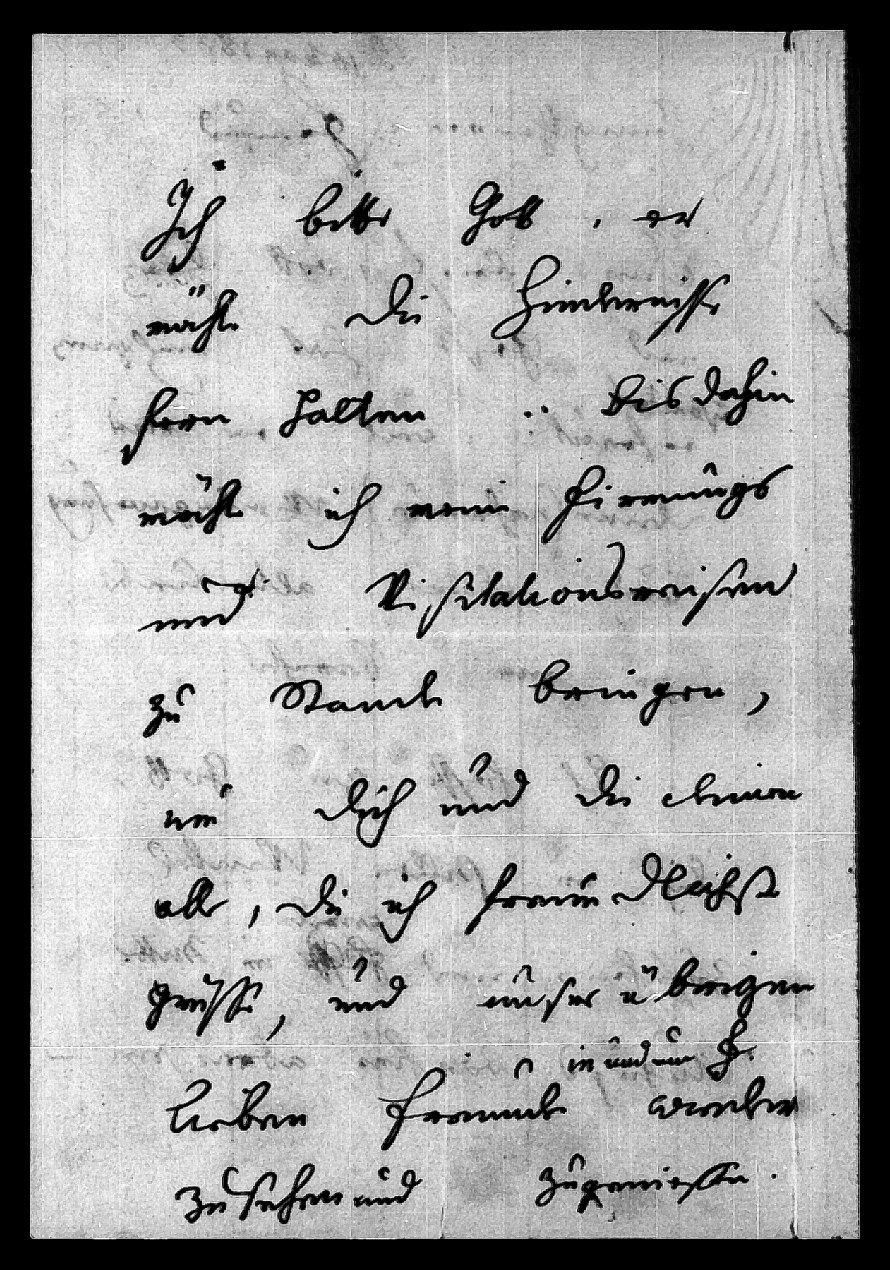 Ich bitte Gott, er
möchte die Hindernisse
fern halten .. bis dahin
möchte ich meine Firmungs
und Visitationsreisen
zu Stande bringen,
um dich und die deinen
alle, die ich freundlichst
grüsse, und unser übrigen
in und um H.
lieben Freunde wieder
zu sehen und zu geniessen.